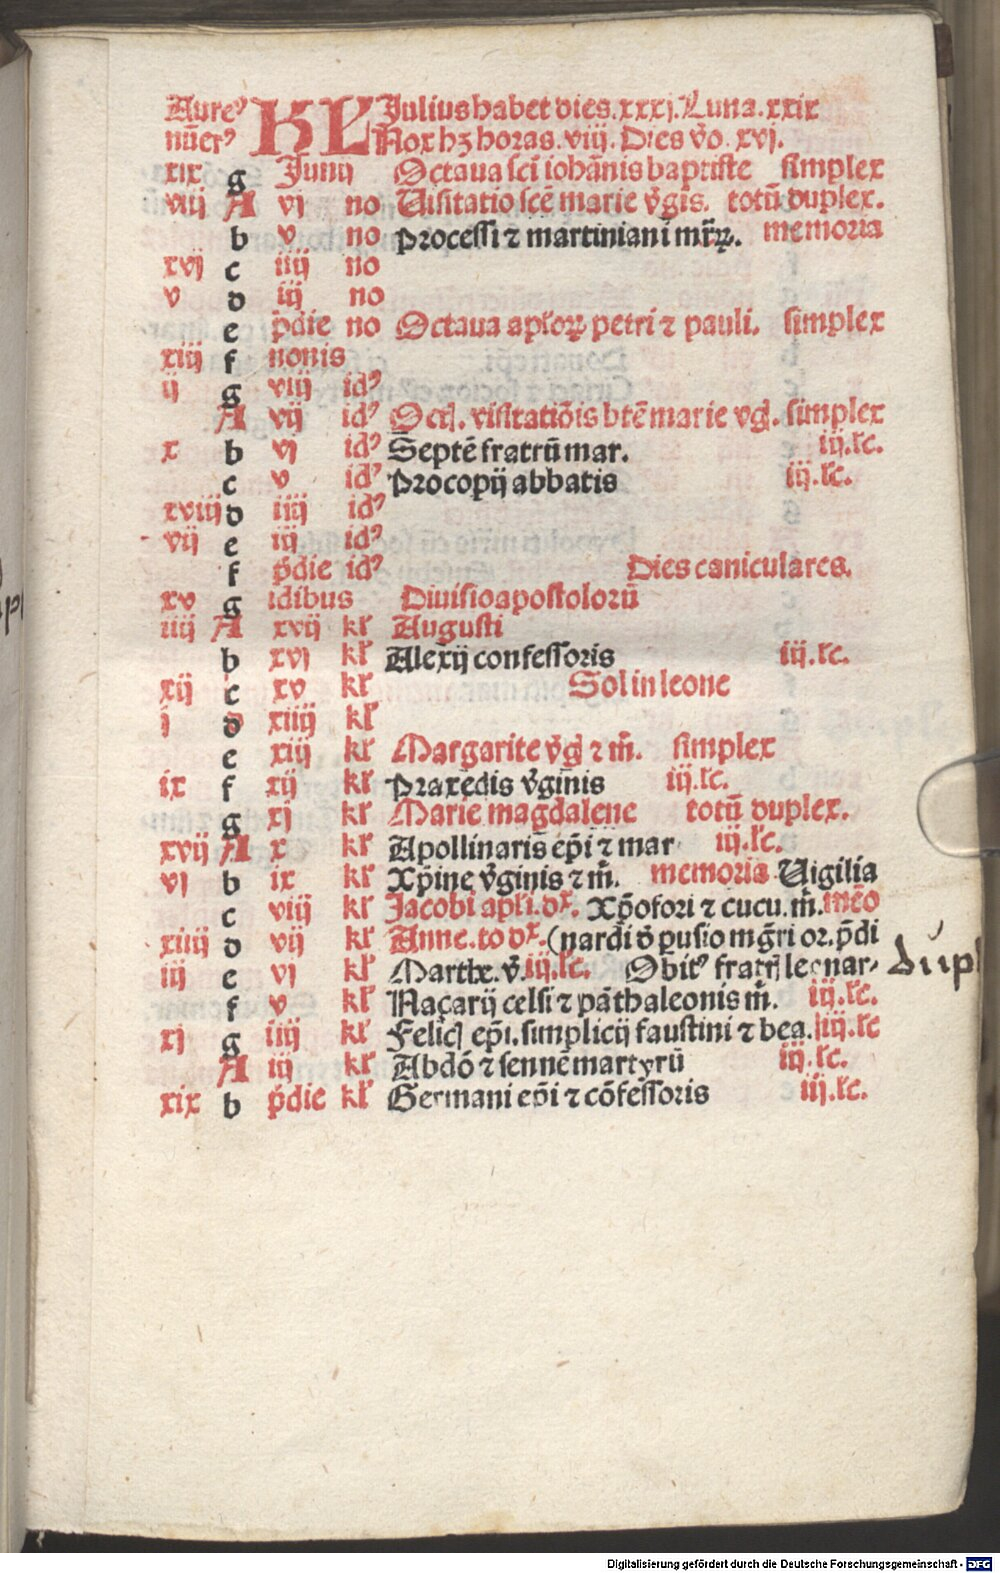 Aureꝰ KL Julius habet dies.xxxj.Luna.xxix
nūerꝰ Nox hꝫ horas.viij.Dies v̄o.xvj.
xix g Junij Octaua scī iohānis baptiste simplex
viij A vj no Uisitatio scē marie v̄gis. totū duplex.
b v no Processi ⁊ martiniani mr̄ꝝ. memoria
xvj c iiij no
v d iij no
e p̄die no Octaua apl'oꝝ petri ⁊ pauli. simplex
xiij f nonis
ij g viij idꝰ
A vij idꝰ Octꝭ. visitatiōis btē marie vgꝭ. simplex
x b vj idꝰ Septē fratrū mar. iij.lc̄.
c v idꝰ Procopij abbatis iij.lc̄.
xviij d iiij idꝰ
vij e iij idꝰ
f p̄die idꝰ Dies caniculares.
xv g idibus Diuisio apostolorū
iiij A xvij kl' Augusti
b xvj kl' Alexij confessoris iij.lc̄.
xij c xv kl' Sol in leone
j d xiiij kl'
e xiij kl' Margarite v̄gꝭ ⁊ m̄. simplex
ix f xij kl' Praxedis v̄ginis iij.lc̄.
g xj kl' Marie magdalene totū duplex.
xvij A x kl' Apollinaris ep̄i ⁊ mar iij.lc̄.
vj b ix kl' Xp̄ine v̄ginis ⁊ m̄. memoria Uigilia
c viij kl' Jacobi apl'i.dx̄. Xp̄ofori ⁊ cucu.m̄.mēo
xiiij d vij kl' Anne.to dx̄.(nardi d̄ pusio mḡri or.p̄di
iij e vj kl' Marthe.v̄.iij.lc̄. Obitꝰ fratrꝭ leonar-
dupl
f v kl' Naçarij celsi ⁊ pāthaleonis m̄. iij.lc̄.
xj g iiij kl' Felicꝭ ep̄i.simplicij faustini ⁊ bea.iij.lc̄
A iij kl' Abdō ⁊ sennē martyrū iij.lc̄.
xix b p̄die kl' Germani ep̄i ⁊ cōfessoris iij.lc̄.
Digitalisierung gefördert durch die Deutsche Forschungsgemeinschaft - DFG